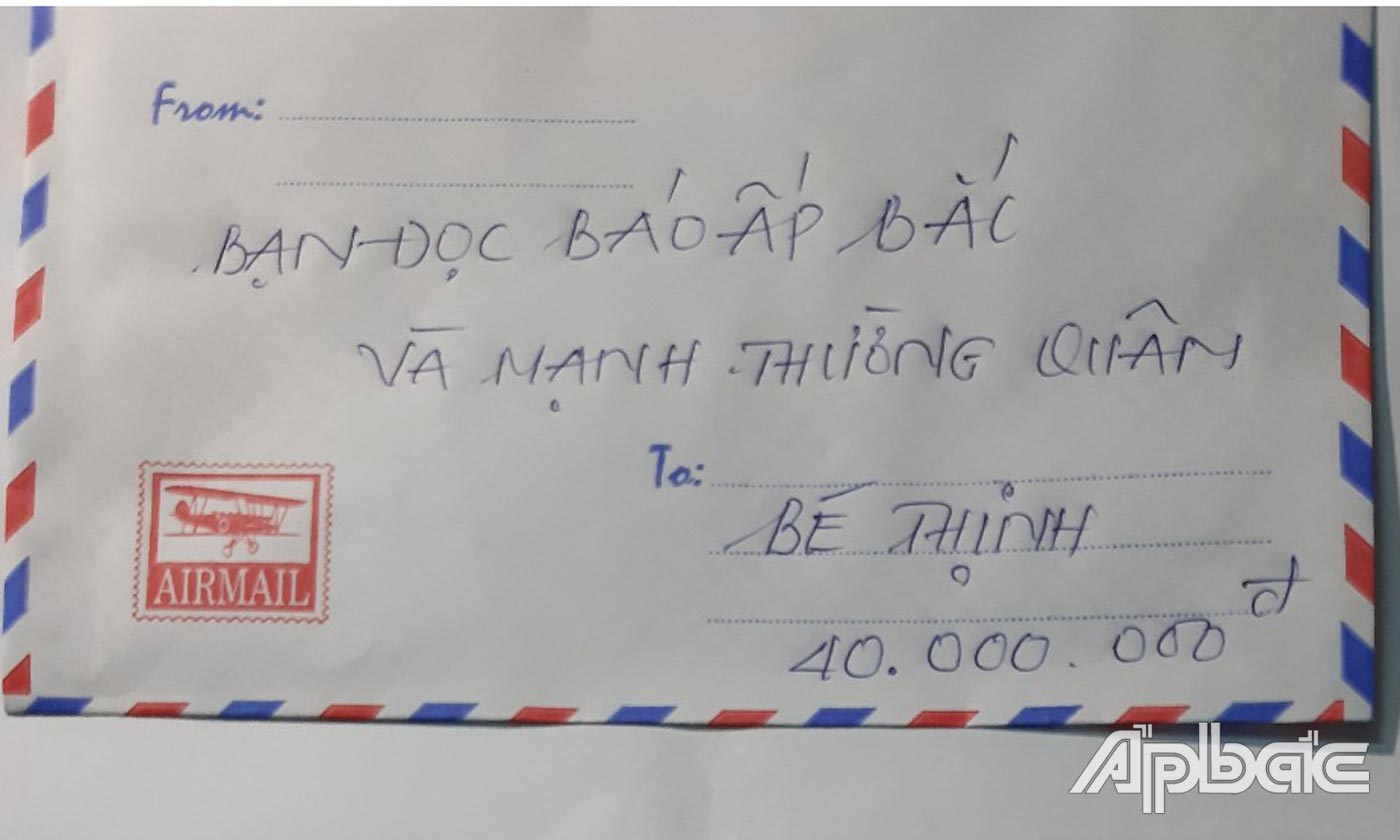 From:
BẠN ĐỌC BÁO ẤP BẮC
VÀ MẠNH THƯỜNG QUÂN
To:
BÉ THỊNH
đ
40.000.000
AIRMAIL
Apbac